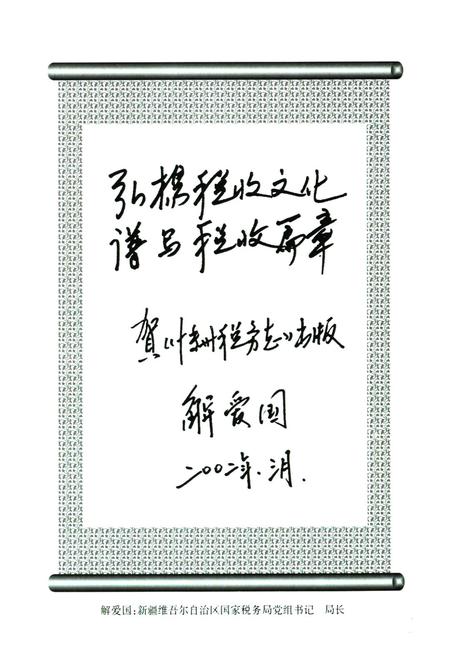 弘扬税收文化
谱写税收篇章
贺《叶城税务志》出版
解爱国
二〇〇二年.三月.
解爱国：新疆维吾尔自治区国家税务局党组书记　局长